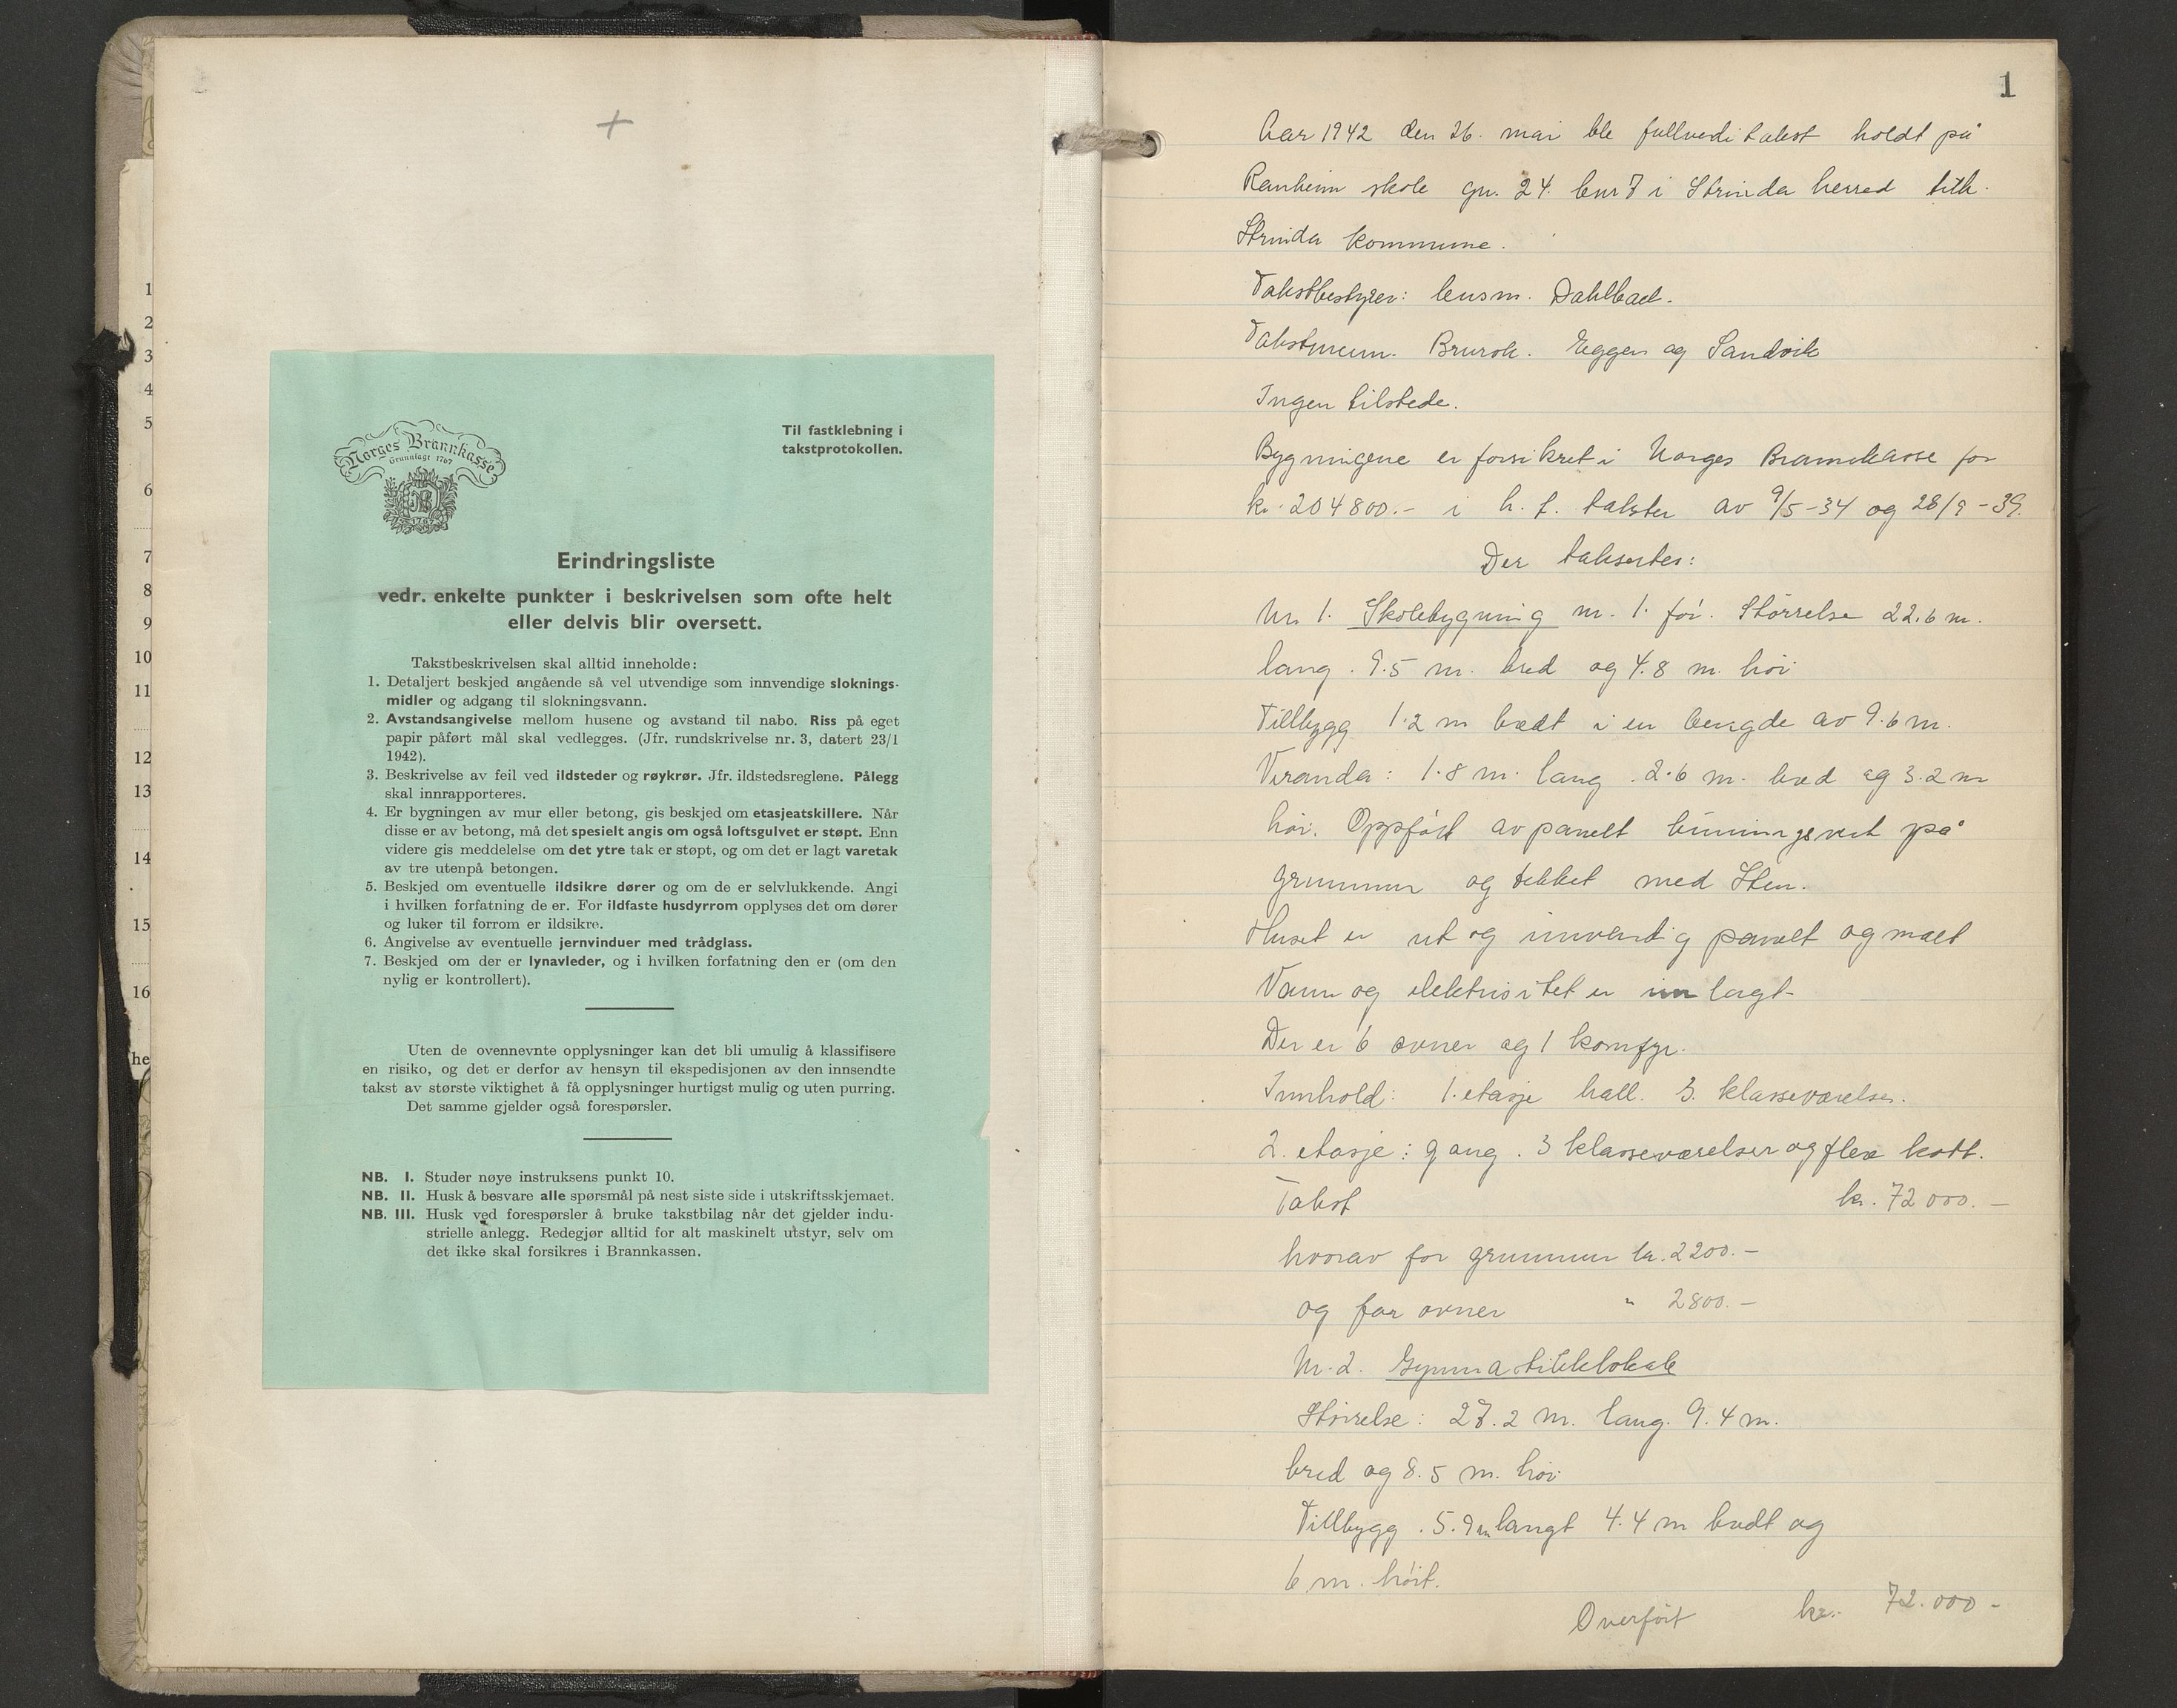 1
2
3
4
5
6
7
8
9
10
11
12
13
14
15
16
he
Norges Brannkasse
Grunnlagt 1767
NB
1767
Til fastklebning i
takstprotokollen.
Erindringsliste
vedr. enkelte punkter i beskrivelsen som ofte helt
eller delvis blir oversett.
Takstbeskrivelsen skal alltid inneholde:
1. Detaljert beskjed angående så vel utvendige som innvendige sloknings-
midler og adgang til slokningsvann.
2. Avstandsangivelse mellom husene og avstand til nabo. Riss på eget
papir påført mål skal vedlegges. (Jfr. rundskrivelse nr. 3, datert 23/1
1942).
3. Beskrivelse av feil ved ildsteder og røykrør. Jfr. ildstedsreglene. Pålegg
skal innrapporteres.
4. Er bygningen av mur eller betong, gis beskjed om etasjeatskillere. Når
disse er av betong, må det spesielt angis om også loftsgulvet er støpt. Enn
videre gis meddelelse om det ytre tak er støpt, og om det er lagt varetak
av tre utenpå betongen.
5. Beskjed om eventuelle ildsikre dører og om de er selvlukkende. Angi
i hvilken forfatning de er. For ildfaste husdyrrom opplyses det om dører
og luker til forrom er ildsikre.
6. Angivelse av eventuelle jernvinduer med trådglass.
7. Beskjed om der er lynavleder, og i hvilken forfatning den er (om den
nylig er kontrollert).
Uten de ovennevnte opplysninger kan det bli umulig å klassifisere
en risiko, og det er derfor av hensyn til ekspedisjonen av den innsendte
takst av største viktighet å få opplysninger hurtigst mulig og uten purring.
Det samme gjelder også forespørsler.
NB. I. Studer nøye instruksens punkt 10.
NB. II. Husk å besvare alle spørsmål på nest siste side i utskriftsskjemaet.
NB. III. Husk ved forespørsler å bruke takstbilag når det gjelder indu-
strielle anlegg. Redegjør alltid for alt maskinelt utstyr, selv om
det ikke skal forsikres i Brannkassen.
1
Aar 1942 den 26. mai ble fullverditakst holdt på
Ranheim skole gn. 24. bnr 7 i Strinda herred tilh.
Strinda kommune.
Takstbestyrer: lensm. Dahlback.
Takstmenn. Brurok. Eggen og Sandvik
Ingen tilstede.
Bygningene er forsikret i Norges Brannkasse for
kr. 204800.- i h. t. takster av 9/5-34 og 28/9-39.
Der takseres:
Nr. 1. Skolebygning nr. 1. før. Størrelse 22.6 m.
lang. 9.5 m. bred og 4.8 m. høi
Tillbygg 1.2 m bredt i en lengde av 9.6 m.
Veranda: 1.8 m. lang. 2.6 m. bred og 3.2 m
høi. Oppført av panelt binningsverk på
grunnmur og tekket med Sten.
Huset er ut og innvendig panelt og malt
Vann og elektrisitet er innlagt
Der er 6 ovner og 1 komfyr.
Innhold: 1. etasje hall. 3. klasseværelser.
2. etasje: gang. 3 klasseværelser og flere kott.
Takst kr. 72 000.-
hvorav for grunnmur kr. 2200.-
og for ovner " 2800.-
Nr. 2. Gymnatikklokale
Størrelse: 27.2 m. lang. 9.4 m.
bred og 8.5 m. høi
Tillbygg. 5.9 m langt 4.4 m bredt og
6 m. høit.
Overført kr. 72.000-